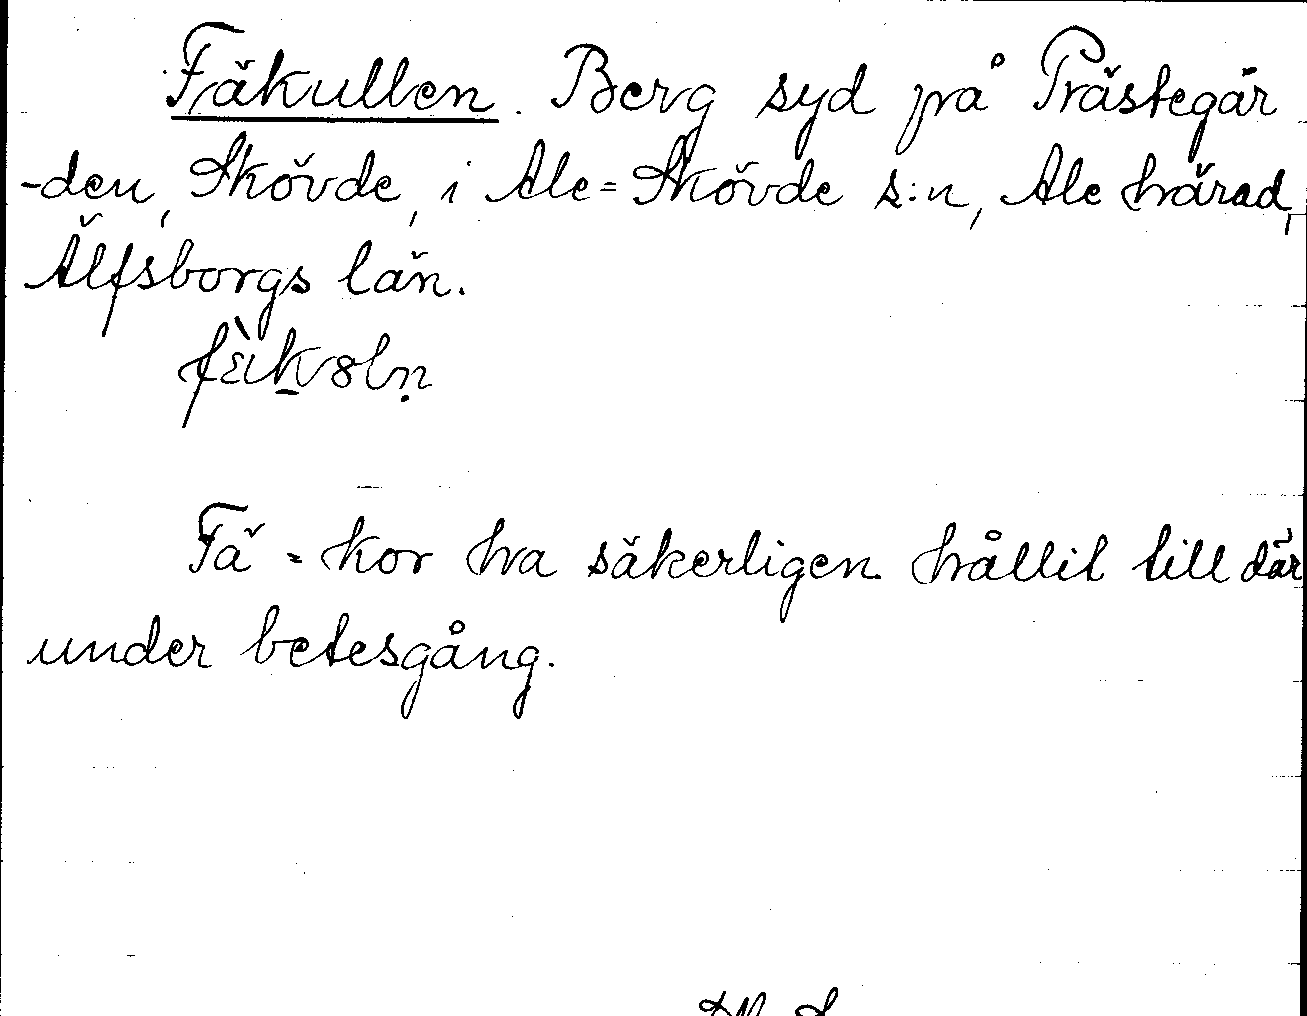 Fäkullen. Berg syd på Prästegår
-den, Skövde, i Ale=Skövde s:n, Ale härad,
Älfsborgs län.
Fä = kor ha säkerligen hållit till där
under betesgång.